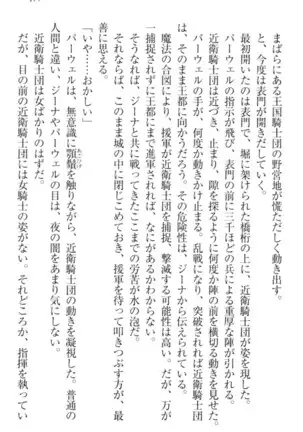 まばらにある王国騎士団の野営地が慌ただしく動き出すと、今度は表門が開きだしていく。
最初開いたのは表門で、堀に架けられた橋桁の上に、近衛騎士団が姿を見せる。
パーウェルの指示が飛び、表門の前に三千ほどの兵による重厚な陣が引かれる。
近衛騎士団は近づき、止まり、隙を探るように何度か陣の前を横切る動きを見せた。
パーウェルの手が、何度か動きかけ止まる。乱戦になり、突破されれば近衛騎士団はそのまま王都に向かうだろう。その危険性は、ジーナから伝えられている。
魔法の合図により、援軍が近衛騎士団を捕捉、撃滅する可能性は高い。だが、万が一捕捉されずに王都まで進軍されれば、なにがあるかわからない。
そうなれば、ジーナと共に戦ってきたここまでの労苦が水の泡だ。
それならば、このまま城の中に閉じこめておいて、援軍を待って叩きつぶす方が、最善に思える。
「いや……おかしい」
パーウェルは、無意識に顎髭を触りながら、近衛騎士団の動きを凝視した。普通の人間と違い、ジーナやパーウェルの目は、夜の闇をあまり気にしない。
だが、目の前の近衛騎士団には女騎士の姿がない。それどころか、指揮を執ってい
近衛騎士団は女ばかりのはずだ。